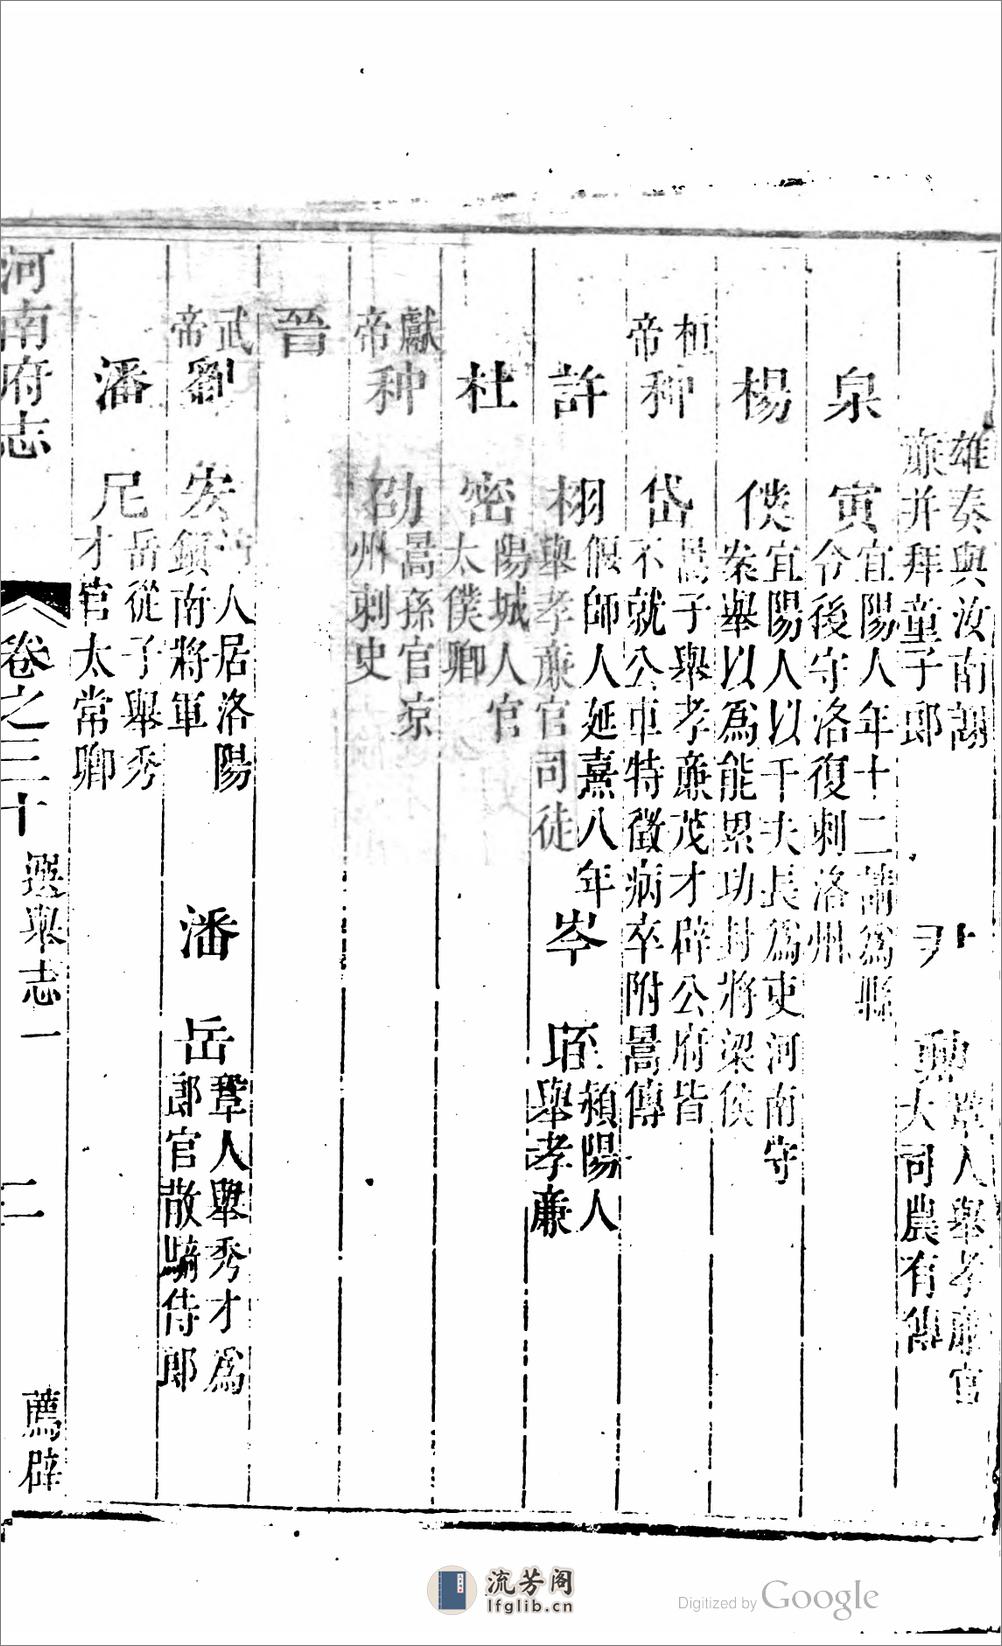 雄奏與汝南謝
廉并拜童子郎
尹 勲
鞏人舉孝廉官
大司農有傳
泉 寅
宜陽人年十二請爲縣
令後守洛復刺洛州
楊 僕
宜陽人以千夫長爲吏河南守
案舉以爲能累功封將梁侯
桓帝
种 岱
暠子舉孝亷茂才辟公府皆
不就公車特徵病卒附暠傳
許 栩
偃師人延熹八年
舉孝亷官司徒
岑 晊
潁陽人
舉孝亷
杜 密
陽城人官
太僕卿
獻帝
种 劭
暠孫官凉
州刺史
晉
武帝
劉 宏
人居洛陽
鎭南將軍
潘 岳
鞏人舉秀才爲
郎官散騎侍郎
潘 尼
岳從子舉秀
才官太常卿
河南府志
卷之三十
選舉志一
二
薦辟
流芳阁
lfglib.cn
Digitized by Google